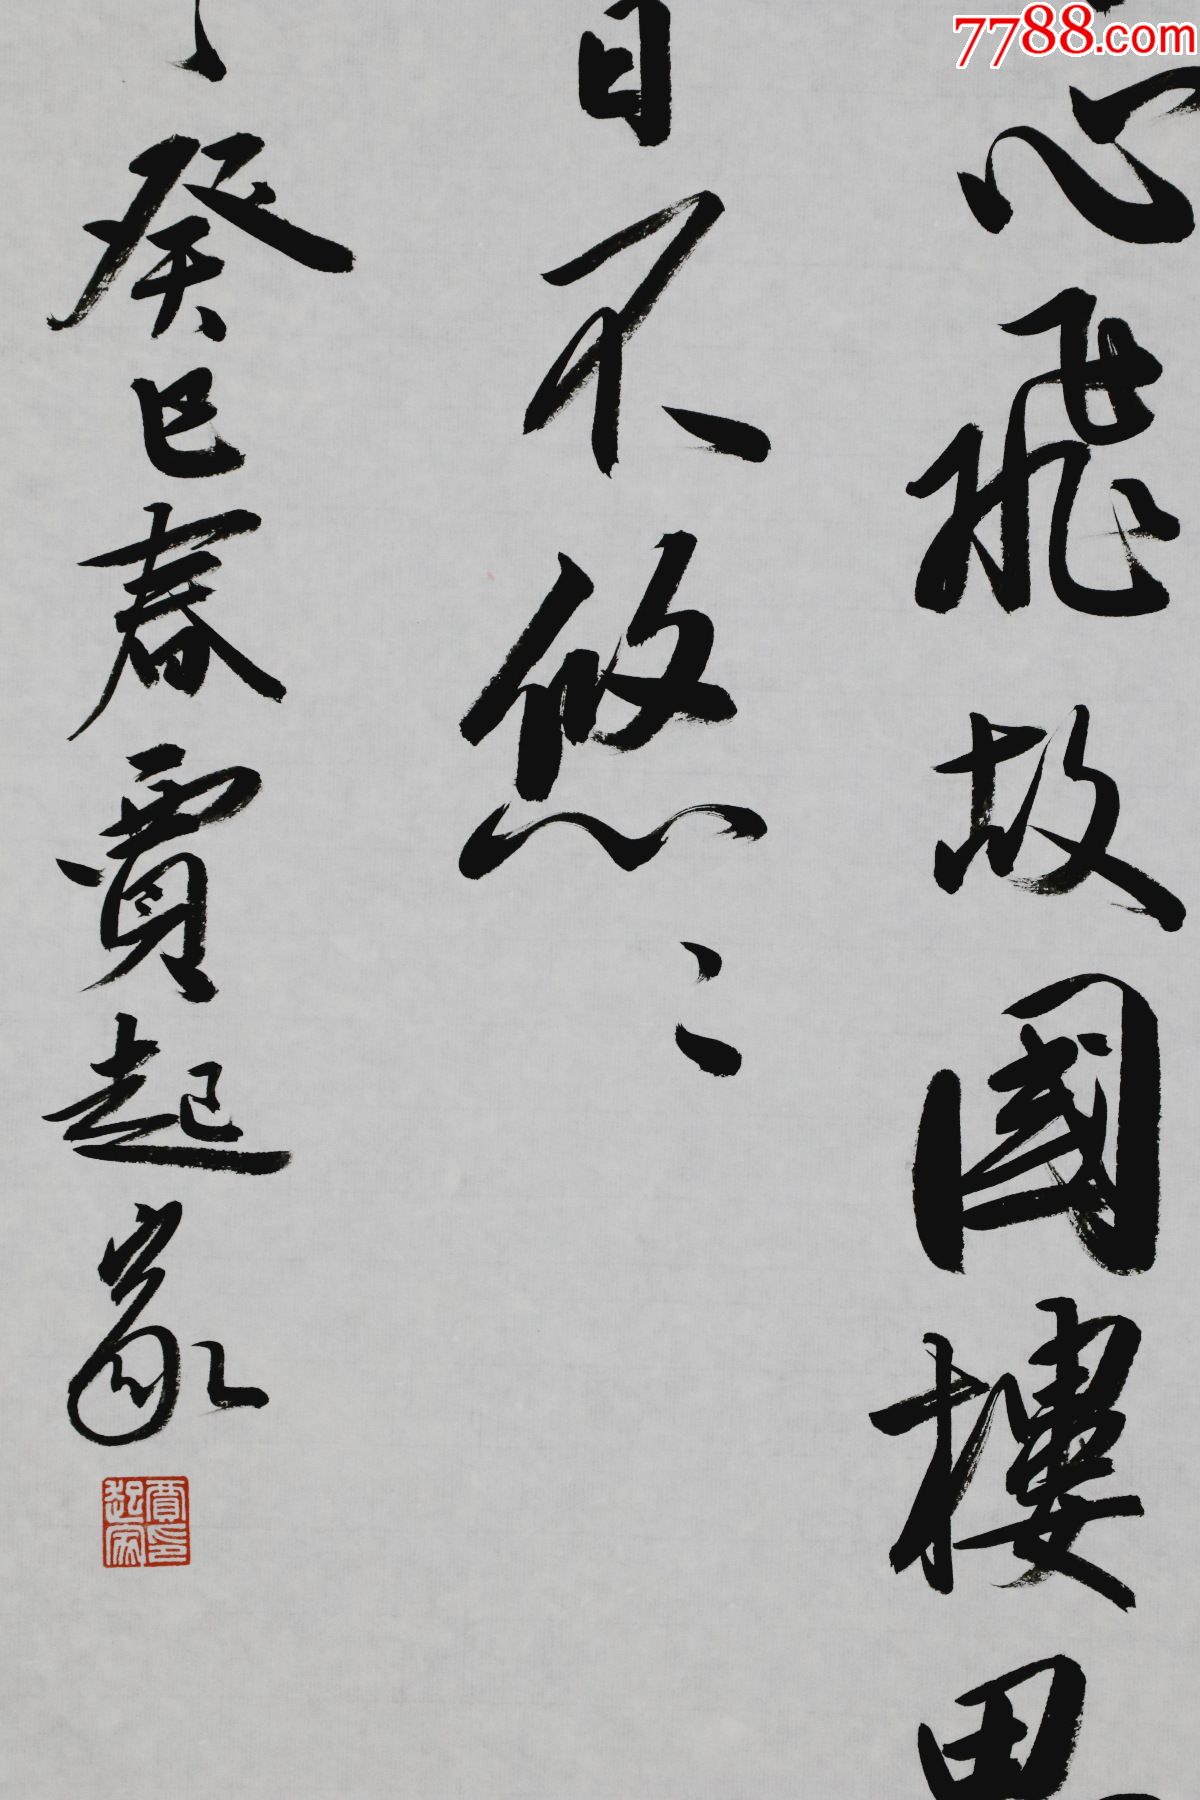 7788.com
心飛故國樓思
日不悠〻
癸巳春賈起家
賈印起家